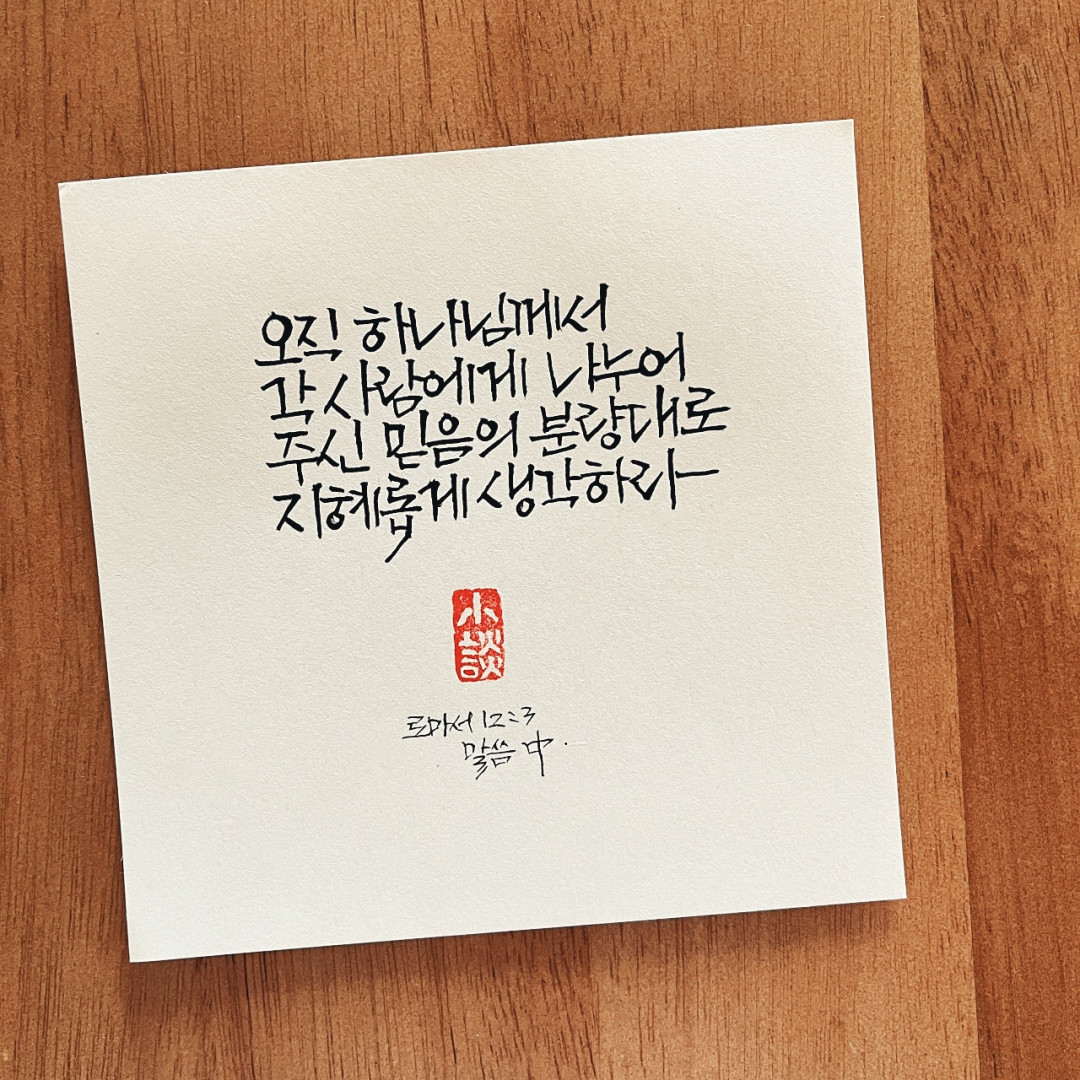 오직 하나님께서
각 사람에게 나누어
주신 믿음의 분량대로
지혜롭게 생각하라
小
談
로마서 12:3
말씀 中.